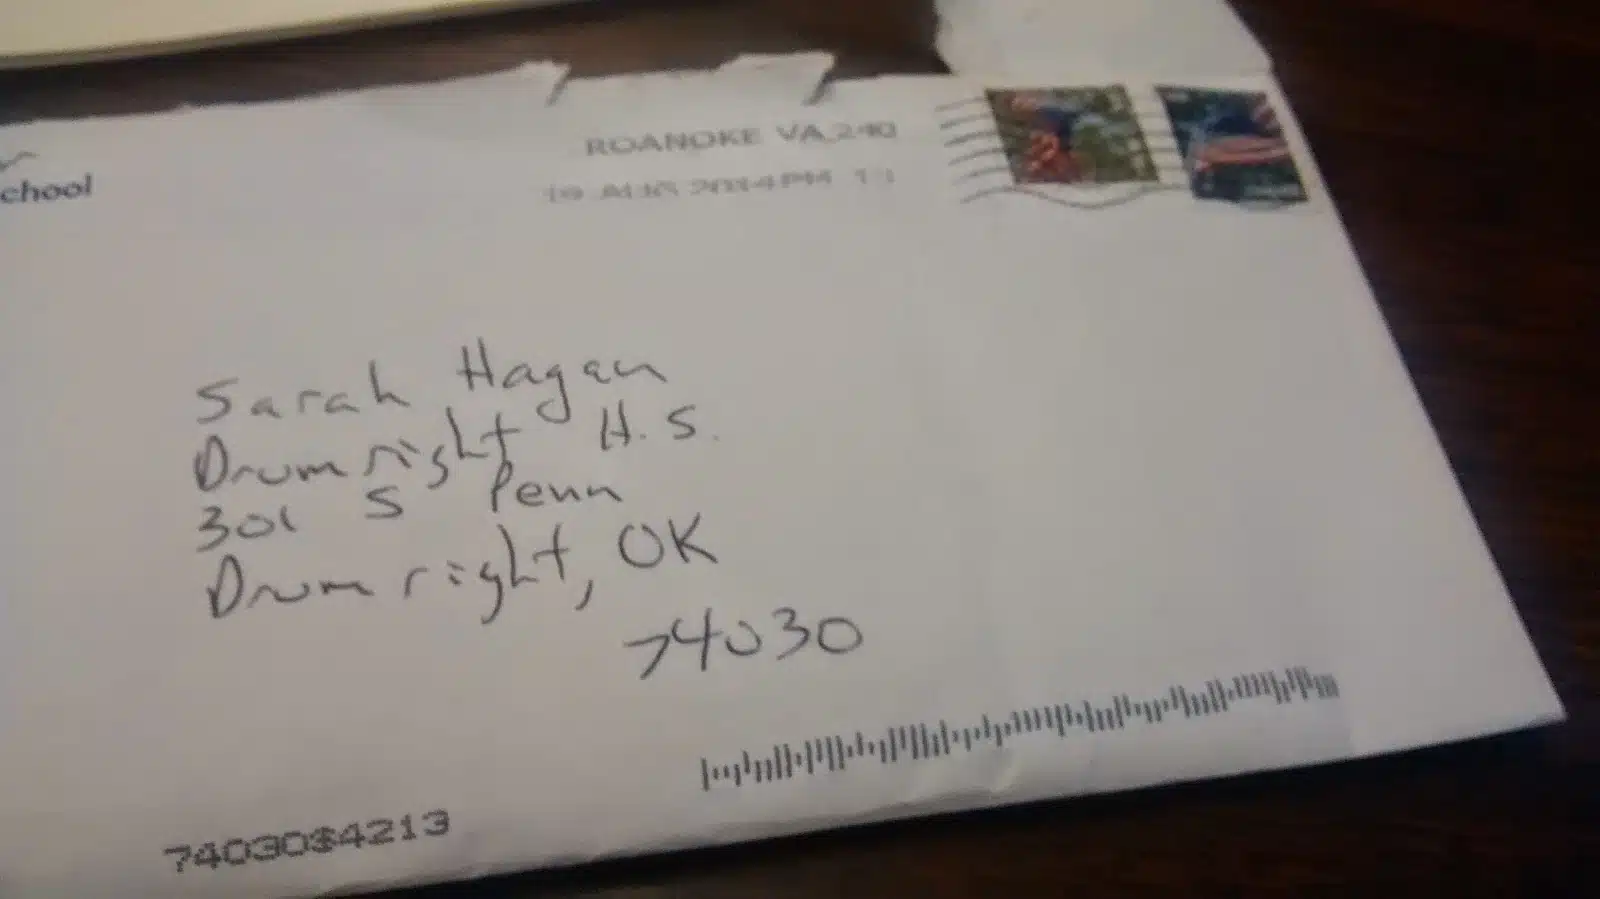 chool
ROANOKE VA 240
19 AUG 2014 PM 1 L
Sarah Hagan
Drumright H.S.
301 S Penn
Drumright, OK
74030
74030$4213